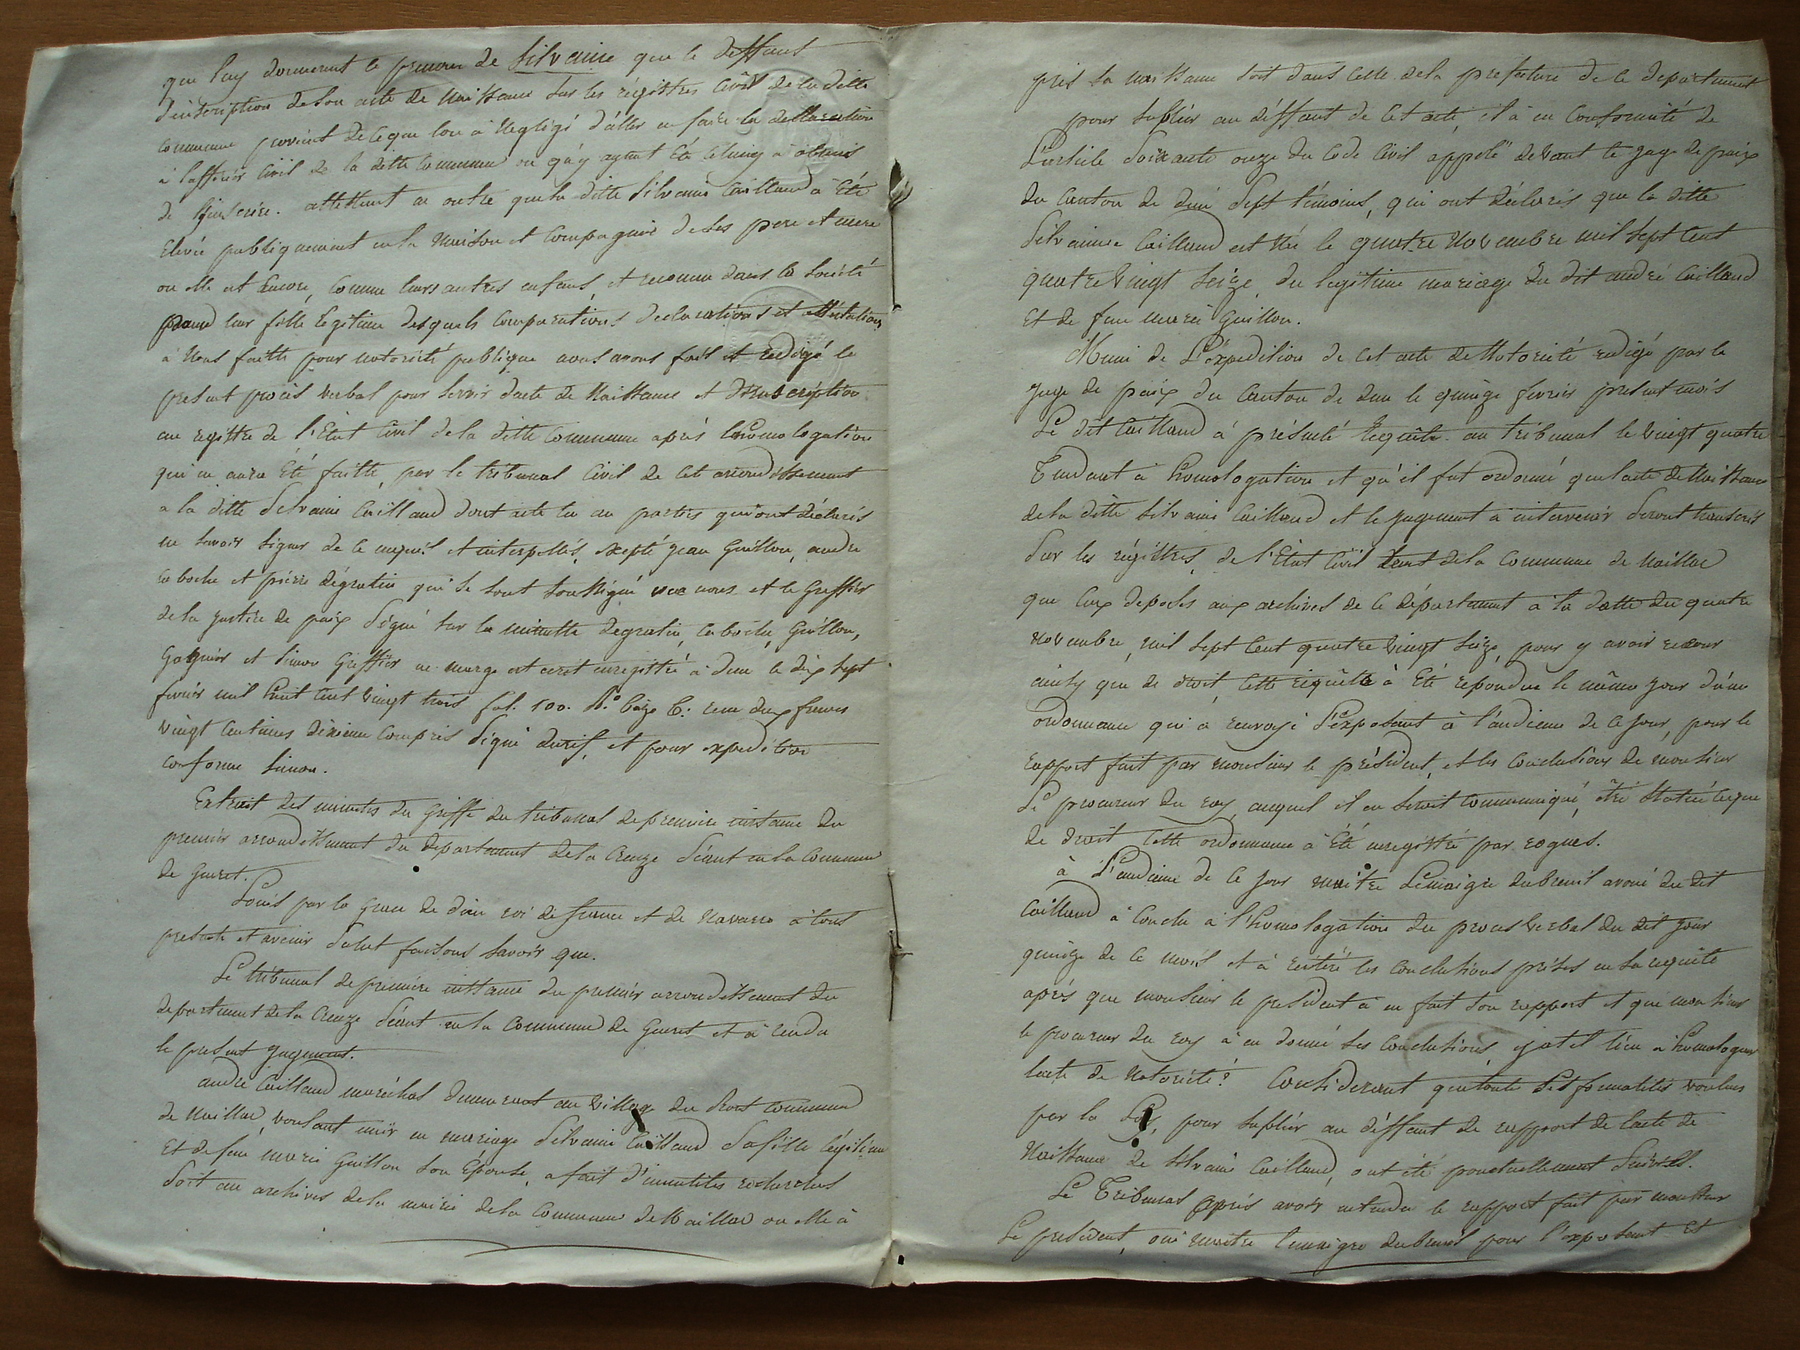 que luy donnerent le prenom de Silvaine que le deffaut
d'inscription de son acte de Naissance sur les régistres Civil de la ditte
commune provient de ce que l'on à Negligé d'aller en faire la declaration
à l'officier Civil de la ditte Commune ou qu'y ayant été celuy à obmis
de l'inscrire. attestent en outre que la ditte Silvaine Caillaud à Eté
Elevée publiquement en la Maison et Compagnie de ses pere et mere
ou elle est Encore, Comme leurs autres enfans, et reconnue dans la Société
pour leur fille légitime desquels Comparutions declarations et attestations
à Nous faitte pour notoriété publique nous avons fait et redigé le
present procès verbal pour Servir d'acte de Naissance et d'inscription
au régistre de l'Etat Civil de la ditte Commune après l'homologation
qui en aura été faitte, par le tribunal Civil de cet arrondissement
a la ditte Silvaine Caillaud dont acte lu au parties qui ont déclarés
ne Savoir Signer de ce enquis et interpellés, excepté jean Guillon, andré
laboche et pierre dégratin qui se sont Soussigné avec nous et le Greffier
de la justice de paix Signé Sur la minutte degratin, laboche, Guillon,
et Simon Greffier en marge est ecrit enregistré à dun le dix sept
fevrier mil huit cent vingt trois fol. 100. Rº C. reçu deux francs
vingt centimes dixieme compris Signé et pour expedition
conforme Simon.
Extrait des minutes du Greffe du tribunal de premiere instance du
premier arrondissement du departement de la Creuze Séant en la Commune
de Gueret.
Louis par la grace de dieu roi de france et de navarre à tous
presents et avenir Salut faisons Savoir que.
Le tribunal de premiere instance du premier arrondissement du
departement de la Creuze Séant en la Commune de Gueret et à rendu
le present jugement.
andré Caillaud maréchal demeurant au village du commune
de Naillac, voulant unir en mariage Silvaine Caillaud Sa fille légitime
et de feue marie Guillon Son Epouse, a fait d'inutiles recherches
Soit au archives de la mairie de la Commune de Naillac ou elle à
pris sa naissance soit dans celle de la prefecture de ce departement
pour Supléer au déffaut de Cet acte, il à en Conformité de
L'article Soixante onze du Code Civil appelé devant le juge de paix
du Canton de dun Sept témoins, qui ont déclarés que la ditte
Silvaine Caillaud est Née le quatre Novembre mil Sept Cent
quatre vingt Seize, du légitime mariage du dit andré Caillaud
et de feue marie Guillon.
Muni de L'éxpedition de cet acte de Notoriété rédigé par le
juge de paix du Canton de dun le quinze fevrier present mois
Le dit Caillaud à présenté Requête au tribunal le vingt quatre
Tendant à homologation et qu'il fut ordonné que l'acte de Naissance
de la ditte Silvaine Caillaud et le jugement à intervenir Seront transcrit
Sur les régistres, de l'Etat Civil tant de la Commune de Naillac
que Ceux deposés aux archives de ce département à la datte du quatre
Novembre, mil Sept Cent quatre vingt Seize, pour y avoir recour
ainsy que de droit, Cette requête à Eté repondue le même jour d'une
ordonnance qui à renvoyé l'exposant à l'audience de Ce jour, pour le
rapport fait par monsieur le président, et les conclusions de monsieur
Le procureur du roy, auquel il en Seroit communiqué, être Statué ce que
de droit Cette ordonnance à Eté enregistré par roques.
à L'audience de Ce jour maitre Lemaigre dubreuil avoué du dit
Caillaud à Conclu à l'homologation du procès verbal du dit jour
quinze de Ce mois et à reitéré les Conclusions prises en Sa requête
après que monsieur le président à eu fait Son rapport et que monsieur
le procureur du roy à eu donné Ses Conclusions, y at il lieu à homologuer
l'acte de Notoriété? Considerant que toute les formalités voulues
par la Loy, pour Supléer au déffaut de rapport de l'acte de
Naissance de Silvaine Caillaud, ont été ponctuellement Suivies.
Le Tribunal après avoir entendu le rapport fait par monsieur
Le président, oui maitre lemaigre dubreuil pour l'exposant et